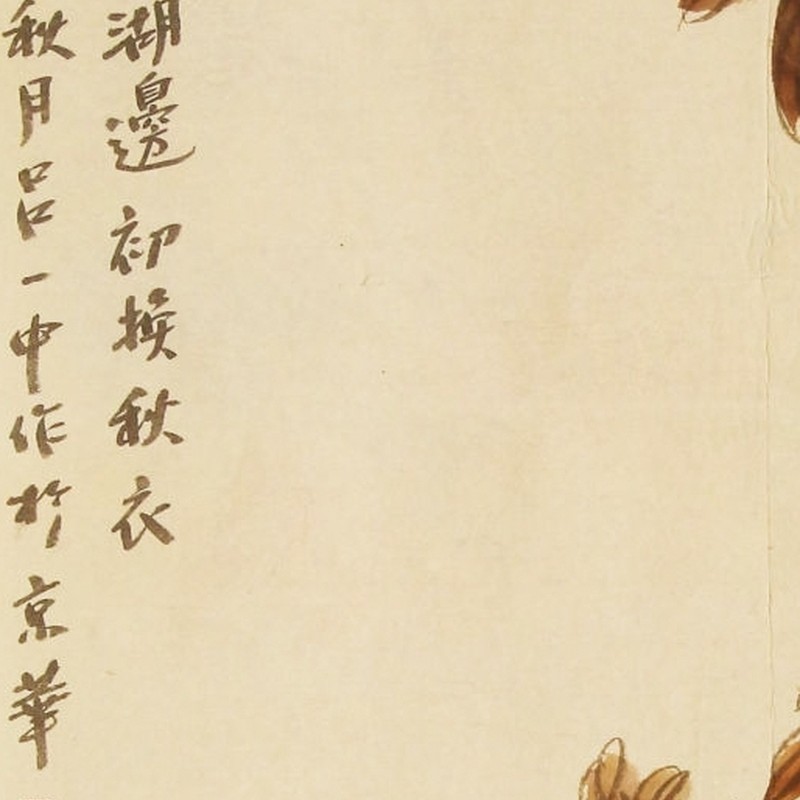 湖邊初換秋衣
秋月呂一中作於京華